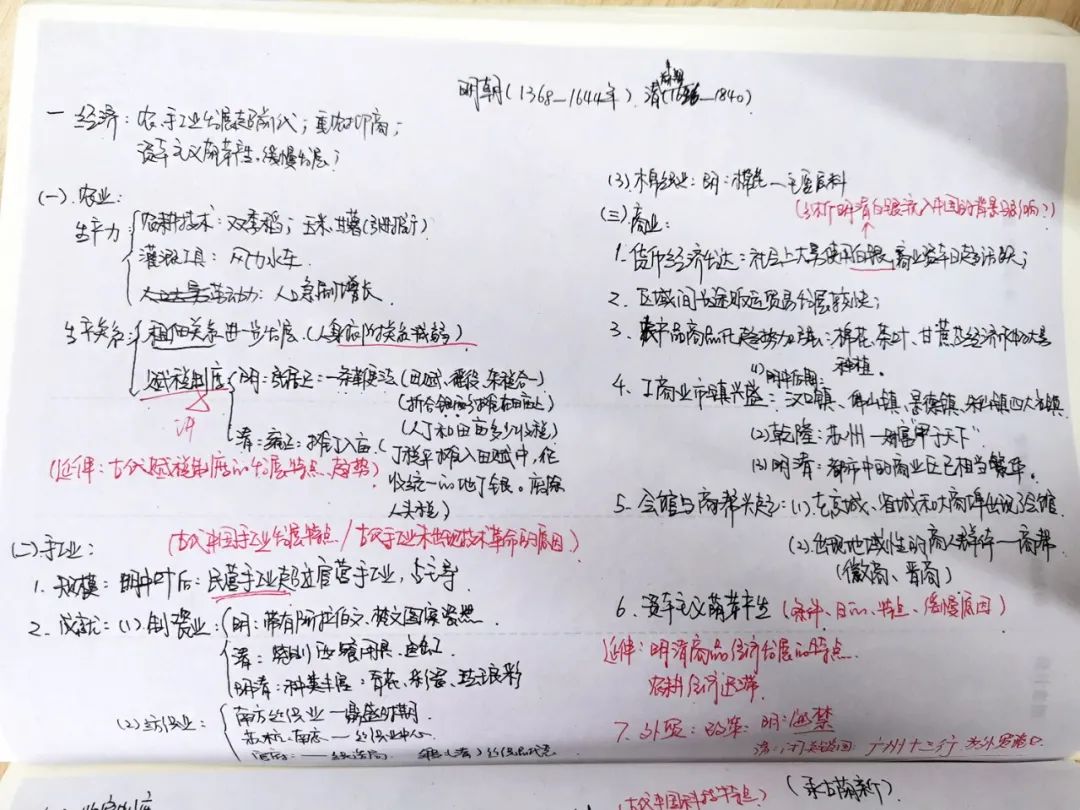 明朝(1368—1644年) 清(16 —1840)
一 经济：农、手工业发展超前代；重农抑商；
资本主义萌芽产生、缓慢发展；
(一).农业：
生产力
农耕技术：双季稻；玉米、甘薯(引进推行)
灌溉工具：风力水车.
劳动力：人口急剧增长.
生产关系
租佃关系进一步发展.(人身依附关系减弱)
赋税制度
明：张居正：一条鞭法(田赋、徭役、杂税合一)
(人丁和田亩多少收税)
清：雍正：摊丁入亩(丁税平摊入田赋中，征
收统一的地丁银。废除
人头税)
(延伸：古代赋税制度的发展特点、趋势)
(二).手工业：
(古代中国手工业发展特点/古代手工业未出现技术革命的原因)
1. 规模：明中叶后：民营手工业超过官营手工业，占主导
2. 成就：(1).制瓷业：
明：带有阿拉伯文、梵文图案瓷器.
清：
明清：种类丰富：青花、彩瓷、珐琅彩
(2)纺织业：
南方丝织业—鼎盛时期.
苏杭、南京——丝织业中心.
(3)棉织业：明：棉花—主要原料
(分析明清白银流入中国的背景及影响？)
(三).商业：
1.货币经济发达：社会上大量使用白银，商业资本日趋活跃；
2. 区域间长途贩运贸易发展较快；
3. 农产品商品化趋势加强：棉花、茶叶、甘蔗及经济作物大量
种植。
(1)明中后期：
4. 工商业市镇兴盛：汉口镇、佛山镇、景德镇、朱仙镇四大名镇.
(2)乾隆：苏州—“财富甲于天下”
(3)明清：都市中的商业区已相当繁华。
5. 会馆与商帮兴起：(1).在京城、省城和大商埠出现了会馆
(2).出现地域性的商人群体—商帮
(徽商、晋商)
6. 资本主义萌芽产生(条件、目的、特点、缓慢原因)
延伸：明清商品经济发展的特点.
农耕经济迟滞.
7. 外贸：政策：明：海禁
清：闭关锁国 广州十三行
(古代中国科技特点)
(承古萌新)